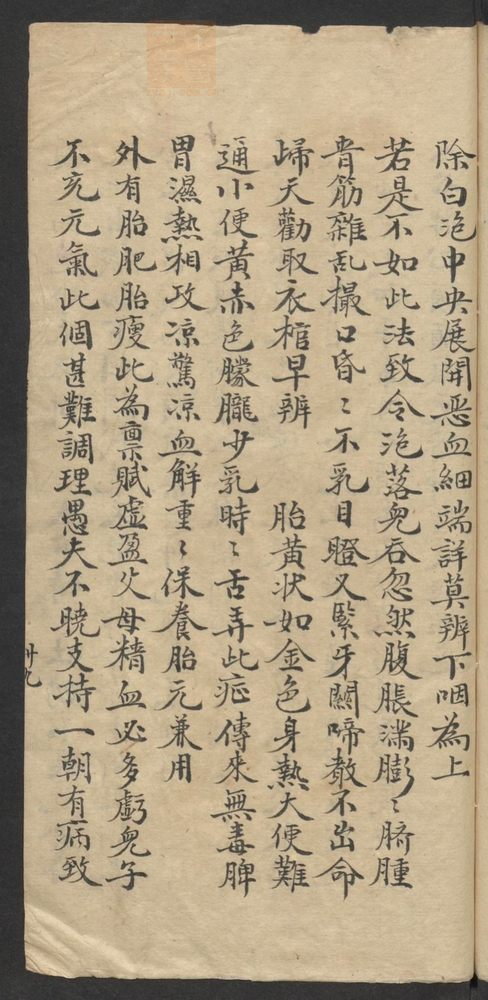 除白泡中央展開恶血細端詳莫辨下咽為上
若是不如此法致令泡落児吞忽然腹脹満膨〻臍腫
青筋雜乱撮口昏〻不乳目瞪又緊牙關啼散不出命
歸天勸取衣棺早辨 胎黄状如金色身熱大便難
通小便黄赤色朦朧少乳時〻舌弄此症傳來無毒脾
胃濕熱相攻凉驚凉血解重〻保養胎元兼用
外有胎肥胎瘦此為禀賦虛盈父母精血必多虧児子
不充元氣此個甚難調理愚夫不曉支持一朝有病致
卅九